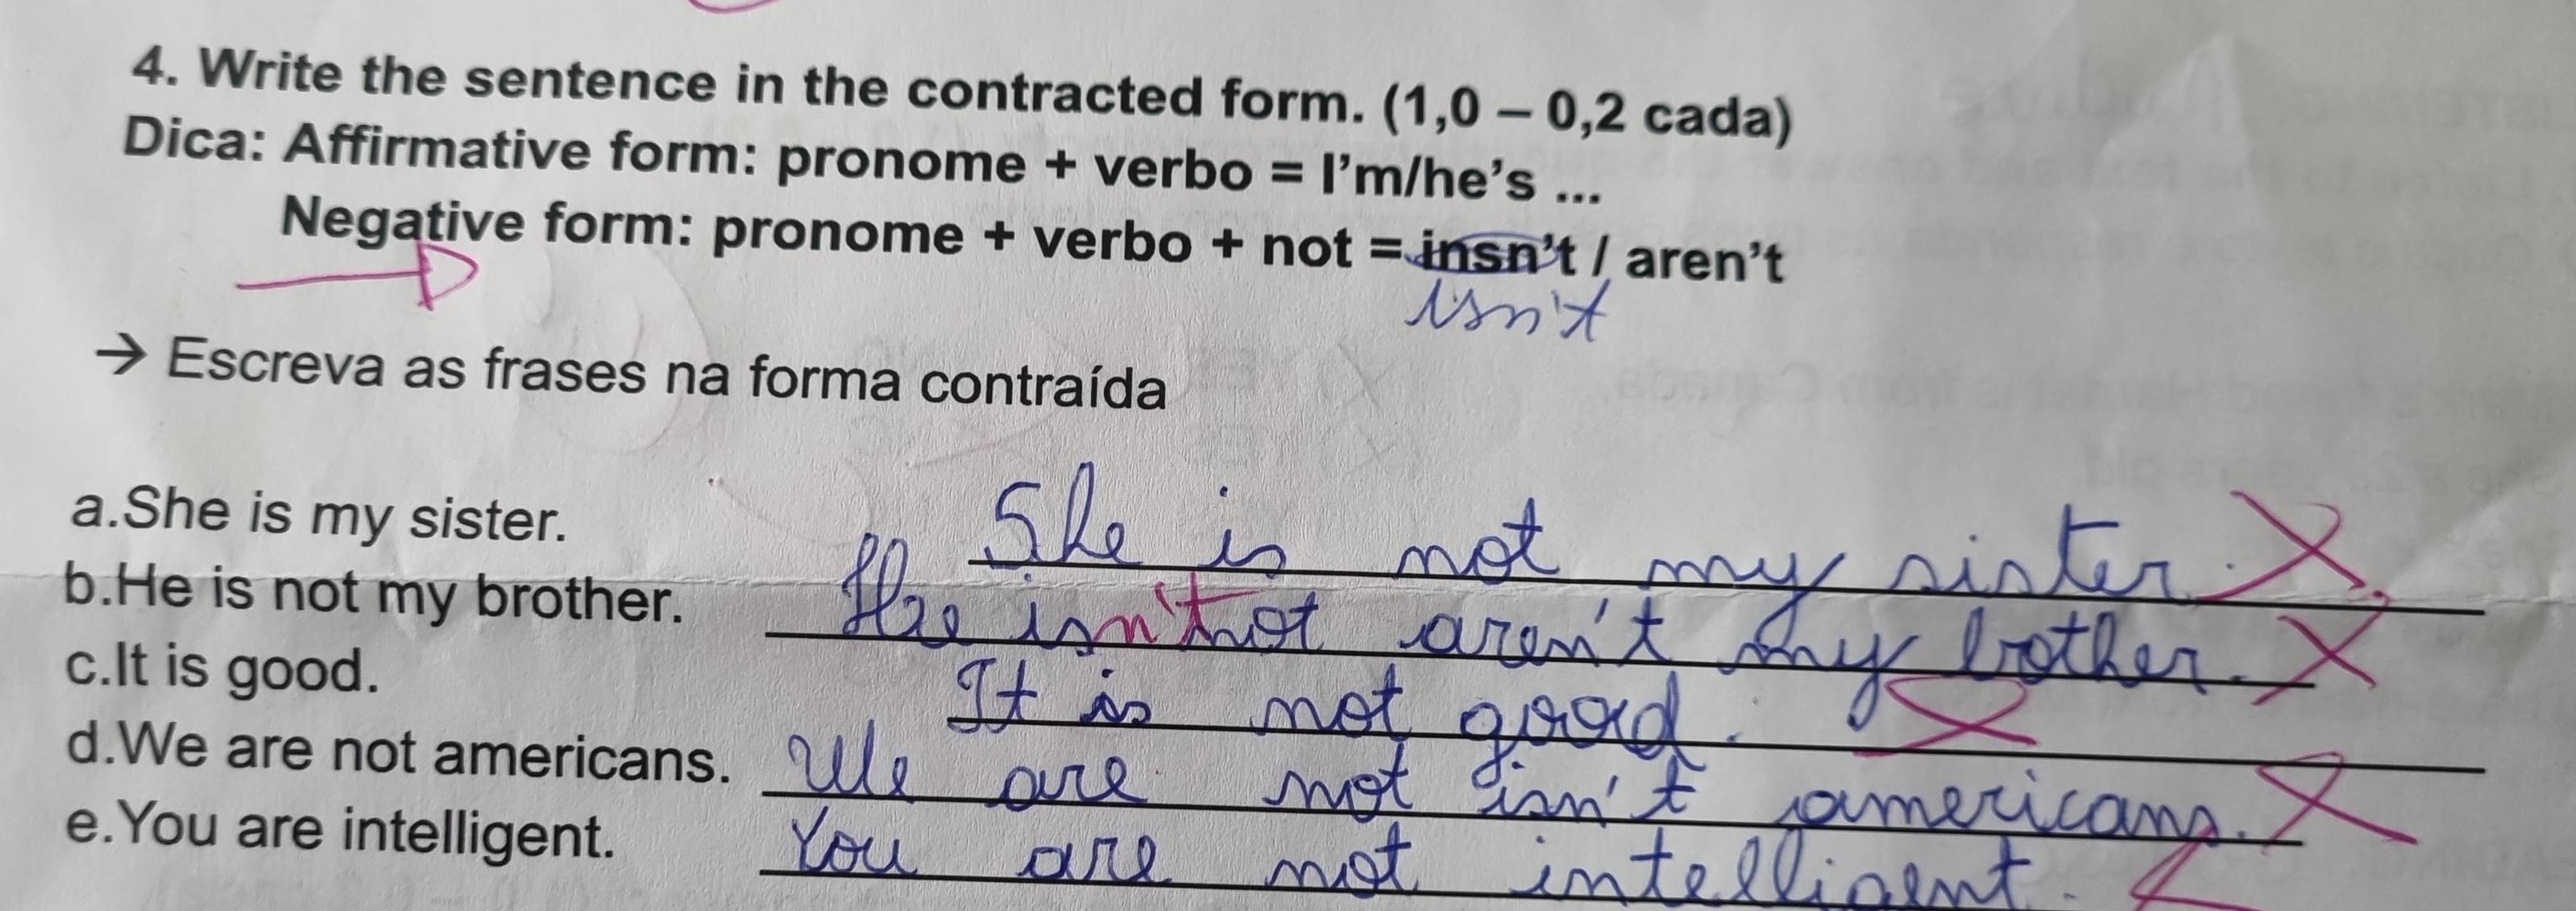 4. Write the sentence in the contracted form. (1,0 – 0,2 cada)
Dica: Affirmative form: pronome + verbo = I'm/he's ...
Negative form: pronome + verbo + not = insn't / aren't
isn't
→ Escreva as frases na forma contraída
a.She is my sister. She is not my sister.
b.He is not my brother. He isn't not aren't my brother.
c.It is good. It is not good.
d.We are not americans. We are not isn't americans.
e.You are intelligent. You are not intelligent.